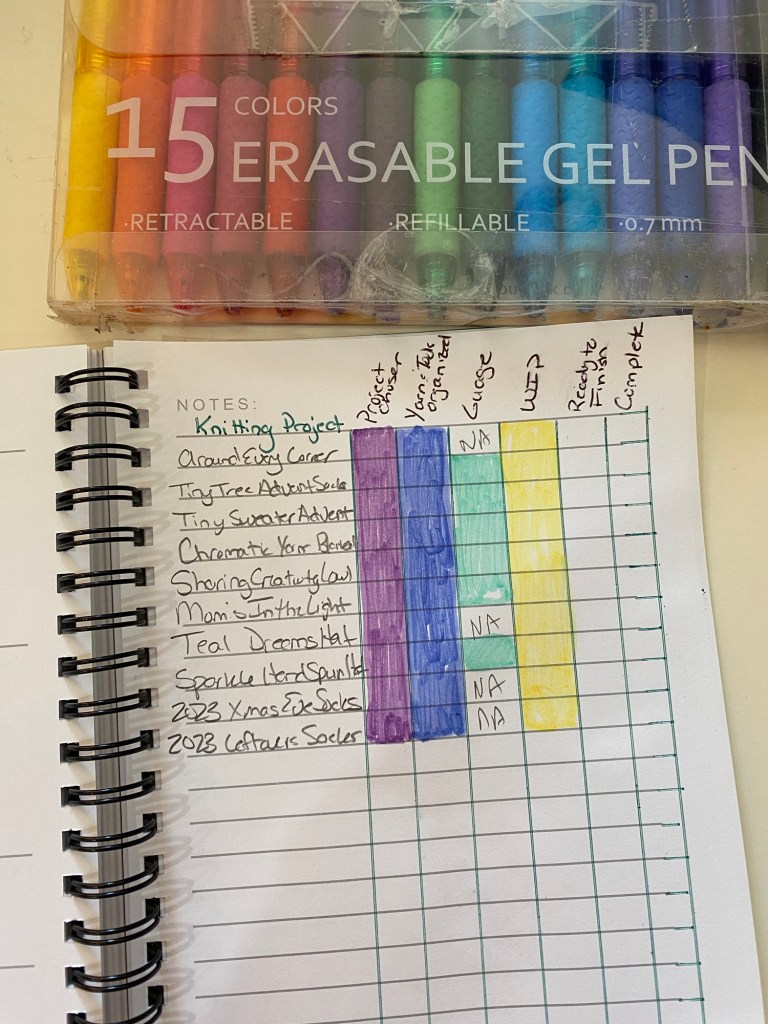 15 COLORS
ERASABLE GEL PEN
·RETRACTABLE ·REFILLABLE ·0.7 mm
NOTES:
Project chosen
Yarn organized
Guage
WIP
Ready to Finish
Complete
Knitting Project
Around Every Corner
NA
Tiny Tree Advent Socks
Tiny Sweater Advent
Chromatic Yarn
Sharing
Mom's In the Light
NA
Teal Dreams Hat
Sparkle Hand Spun Hat
NA
2023 Xmas Eve Socks
NA
2023